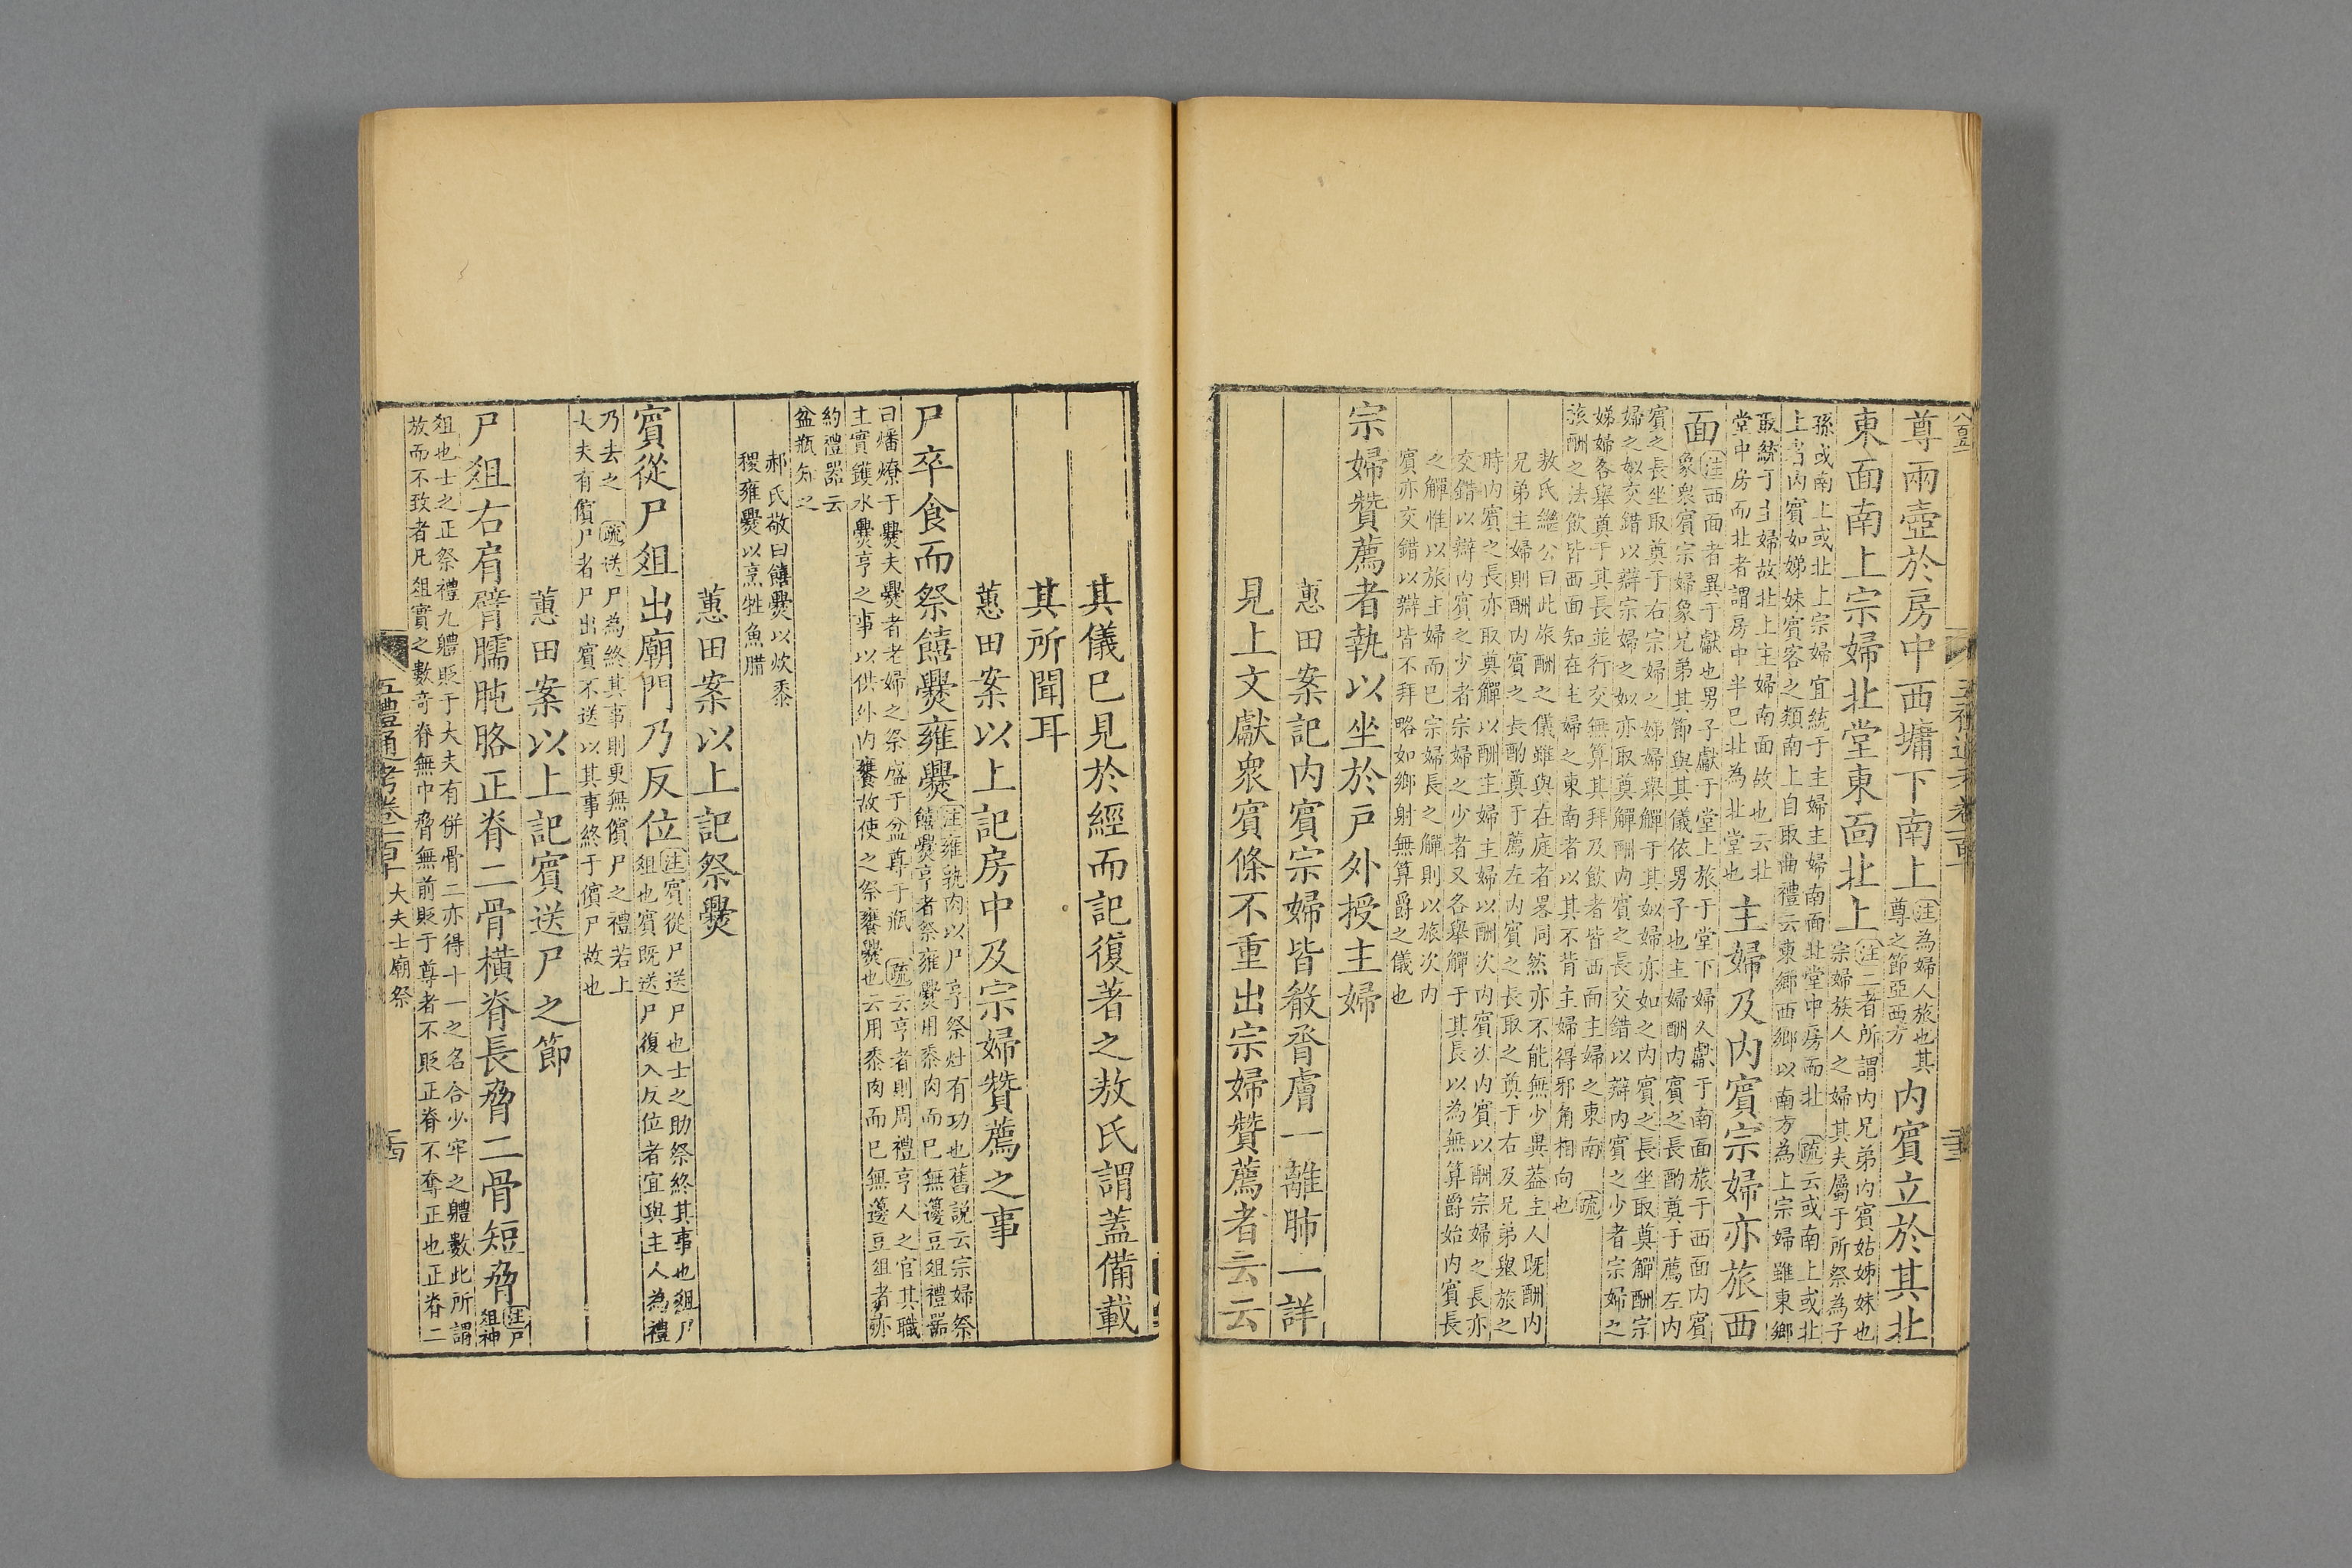 尊兩壺於房中西墉下南上注為婦人旅也其尊之節亞西方內賓立於其北
東面南上宗婦北堂東面北上注二者所謂內兄弟內賓姑姊妹也宗婦族人之婦其夫屬于所祭為子
孫或南上或北上宗婦宜統于主婦主婦南面北堂中房而北疏云或南上或北
上者內賓如娣妹賓客之類南上自取曲禮云東鄉西鄉以南方為上宗婦雖東鄉
取統于主婦故北上主婦南面故也云北
堂中房而北者謂房中半已北為北堂也主婦及內賓宗婦亦旅西
面注西面者異于獻也男子獻于堂上旅于堂下婦人獻于南面旅于西面內賓
象眾賓宗婦象兄弟其節與其儀依男子也主婦酬內賓之長酌奠于薦左內
賓之長坐取奠于右宗婦之娣婦舉觶于其姒婦亦如之內賓之長坐取奠觶酬宗
婦之姒交錯以辯宗婦之姒亦取奠觶酬內賓之長交錯以辯內賓之少者宗婦之
娣婦各舉奠于其長並行交無算其拜及飲者皆西面主婦之東南疏
旅酬之法飲皆西面知在主婦之東南者以其不背主婦得邪角相向也
敖氏繼公曰此旅酬之儀雖與在庭者畧同然亦不能無少異蓋主人既酬內
兄弟主婦則酬內賓之長酌奠于薦左內賓之長取之奠于右及兄弟舉旅之
時內賓之長亦取奠觶以酬主婦主婦以酬次內賓次內賓以酬宗婦之長亦
交錯以辯內賓之少者宗婦之少者又各舉觶于其長以為無算爵始內賓長
之觶惟以旅主婦而已宗婦長之觶則以旅次內
賓亦交錯以辯皆不拜略如鄉射無算爵之儀也
宗婦贊薦者執以坐於戶外授主婦
蕙田案記內賓宗婦皆殽脀膚一離肺一詳
見上文獻眾賓條不重出宗婦贊薦者云云
其儀已見於經而記復著之敖氏謂蓋備載
其所聞耳
蕙田案以上記房中及宗婦贊薦之事
尸卒食而祭饎爨雍爨注雍孰肉以尸享祭灶有功也舊說云宗婦祭
饎爨亨者祭雍爨用黍肉而已無籩豆俎禮器
曰燔燎于爨夫爨者老婦之祭盛于盆尊于瓶疏云亨者則周禮亨人之官其職
主實鑊水爨亨之事以供外內饔故使之祭饔爨也云用黍肉而已無籩豆俎者亦
約禮器云
盆瓶知之
郝氏敬曰饎爨以炊黍
稷雍爨以烹牲魚腊
蕙田案以上記祭爨
賓從尸俎出廟門乃反位注賓從尸送尸也士之助祭終其事也俎尸
俎也賓既送尸復入反位者宜與主人為禮
乃去之疏送尸為終其事則更無儐尸之禮若上
大夫有儐尸者尸出賓不送以其事終于儐尸故也
蕙田案以上記賓送尸之節
尸俎右肩臂臑肫胳正脊二骨橫脊長脅二骨短脅注尸俎神
俎也士之正祭禮九體貶于大夫有併骨二亦得十一之名合少牢之體數此所謂
放而不致者凡俎實之數奇脊無中脅無前貶于尊者不貶正脊不奪正也正脊二
五禮通考卷一百十 大夫士廟祭